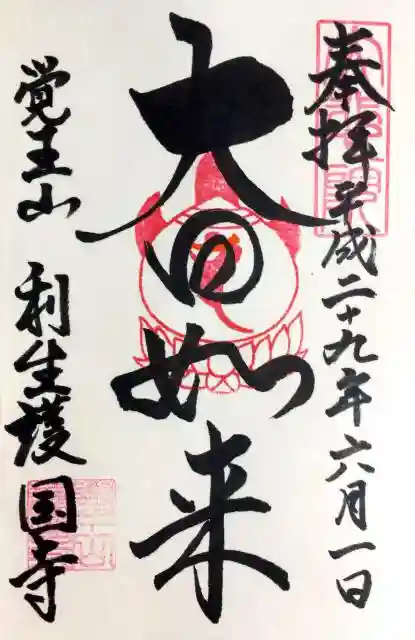 奉拝 平成二十九年六月一日
大日如来
覚王山 利生護国寺